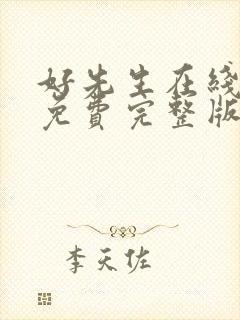 好先生在线
免費完整版
李天佐